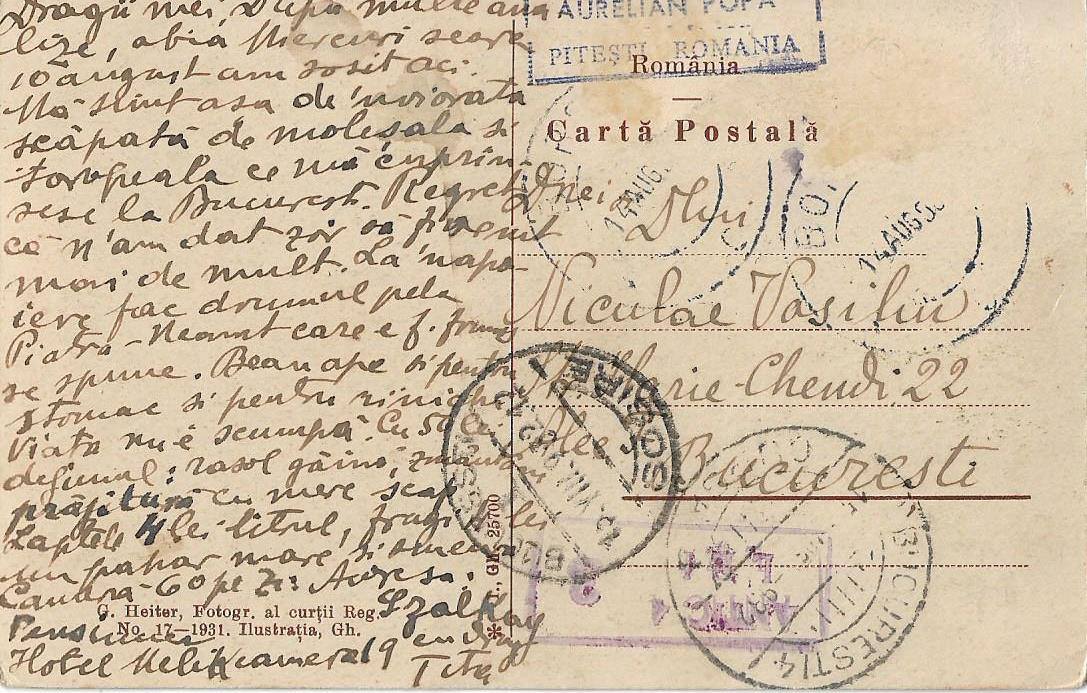 Dragii mei După multe ana
lize, abia Miercuri seara
10 august am sosit aci.
Mă simt asa de 'nviorata
scăpată de moleșala si
toropeala ce mă cuprin-
sese la Bucuresti. Regret
că n'am dat zor să fi venit
mai de mult. La 'napo-
iere fac drumul pela
Piatra-Neamt care e f. frumos
se spune. Beau ape si pentru
stomac si pentru rinichi
Viata nu e scumpă. Cu 50 lei
dejunul: rasol găină,
prăjitură cu mere
Laptele 4 lei litrul, fragi lei
un pahar mare si
Cameră 60 pe zi: Adresa.
Szalkay
Pensiunea
Hotel camera 19 cu drag
Tita
AURELIAN POPA
PITEȘTI ROMANIA
România
Cartă Postală
Dnei Dlui
Niculae Vasiliu
Ilarie Chendi 22
Bucuresti
14 AUG
14 AUG 93
BUCURESTI 4
SOSIRE
ANTIC 4
LEI
G. Heiter, Fotogr. al curții Reg.
No. 17—1931. Ilustrația, Gh.
Gh. 25700